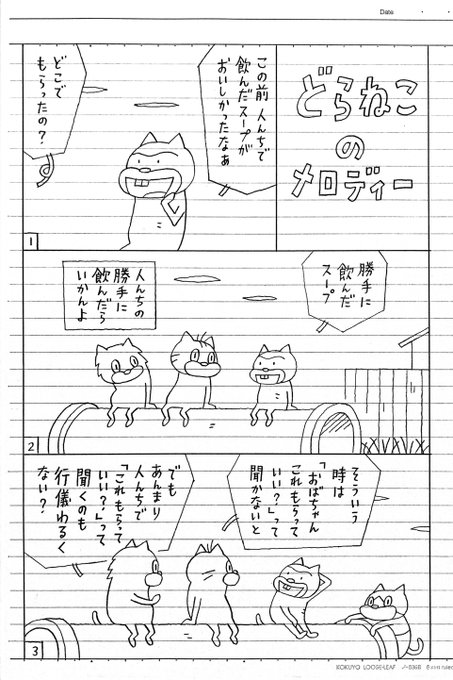 Date
どらねこ
の
メロディー
この前 人んちで
飲んだスープが
おいしかったなぁ
どこで
もらったの?
1
勝手に
飲んだ
スープ
人んちの
勝手に
飲んだら
いかんよ
2
そういう
時は
「おばちゃん
これもらって
いい?」って
聞かないと
でも
あんまり
人んちで
「これもらって
いい?」って
聞くのも
行儀わるく
ない?
3
KOKUYO LOOSE-LEAF ノ-836B